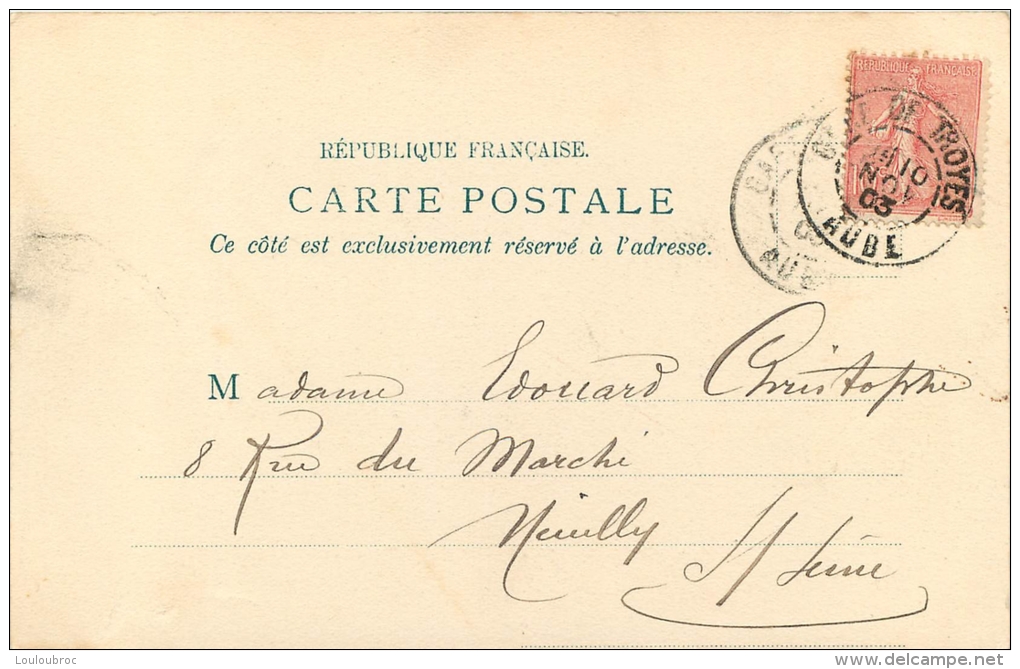 RÉPUBLIQUE FRANÇAISE
RÉPUBLIQUE FRANÇAISE.
CARTE POSTALE
Ce côté est exclusivement réservé à l'adresse.
DE TROYES
10
NOV
03
AUBE
Madame Edouard Christophe
8 Rue du Marché
Neuilly S/ Seine
Louloubroc
delcampe.net